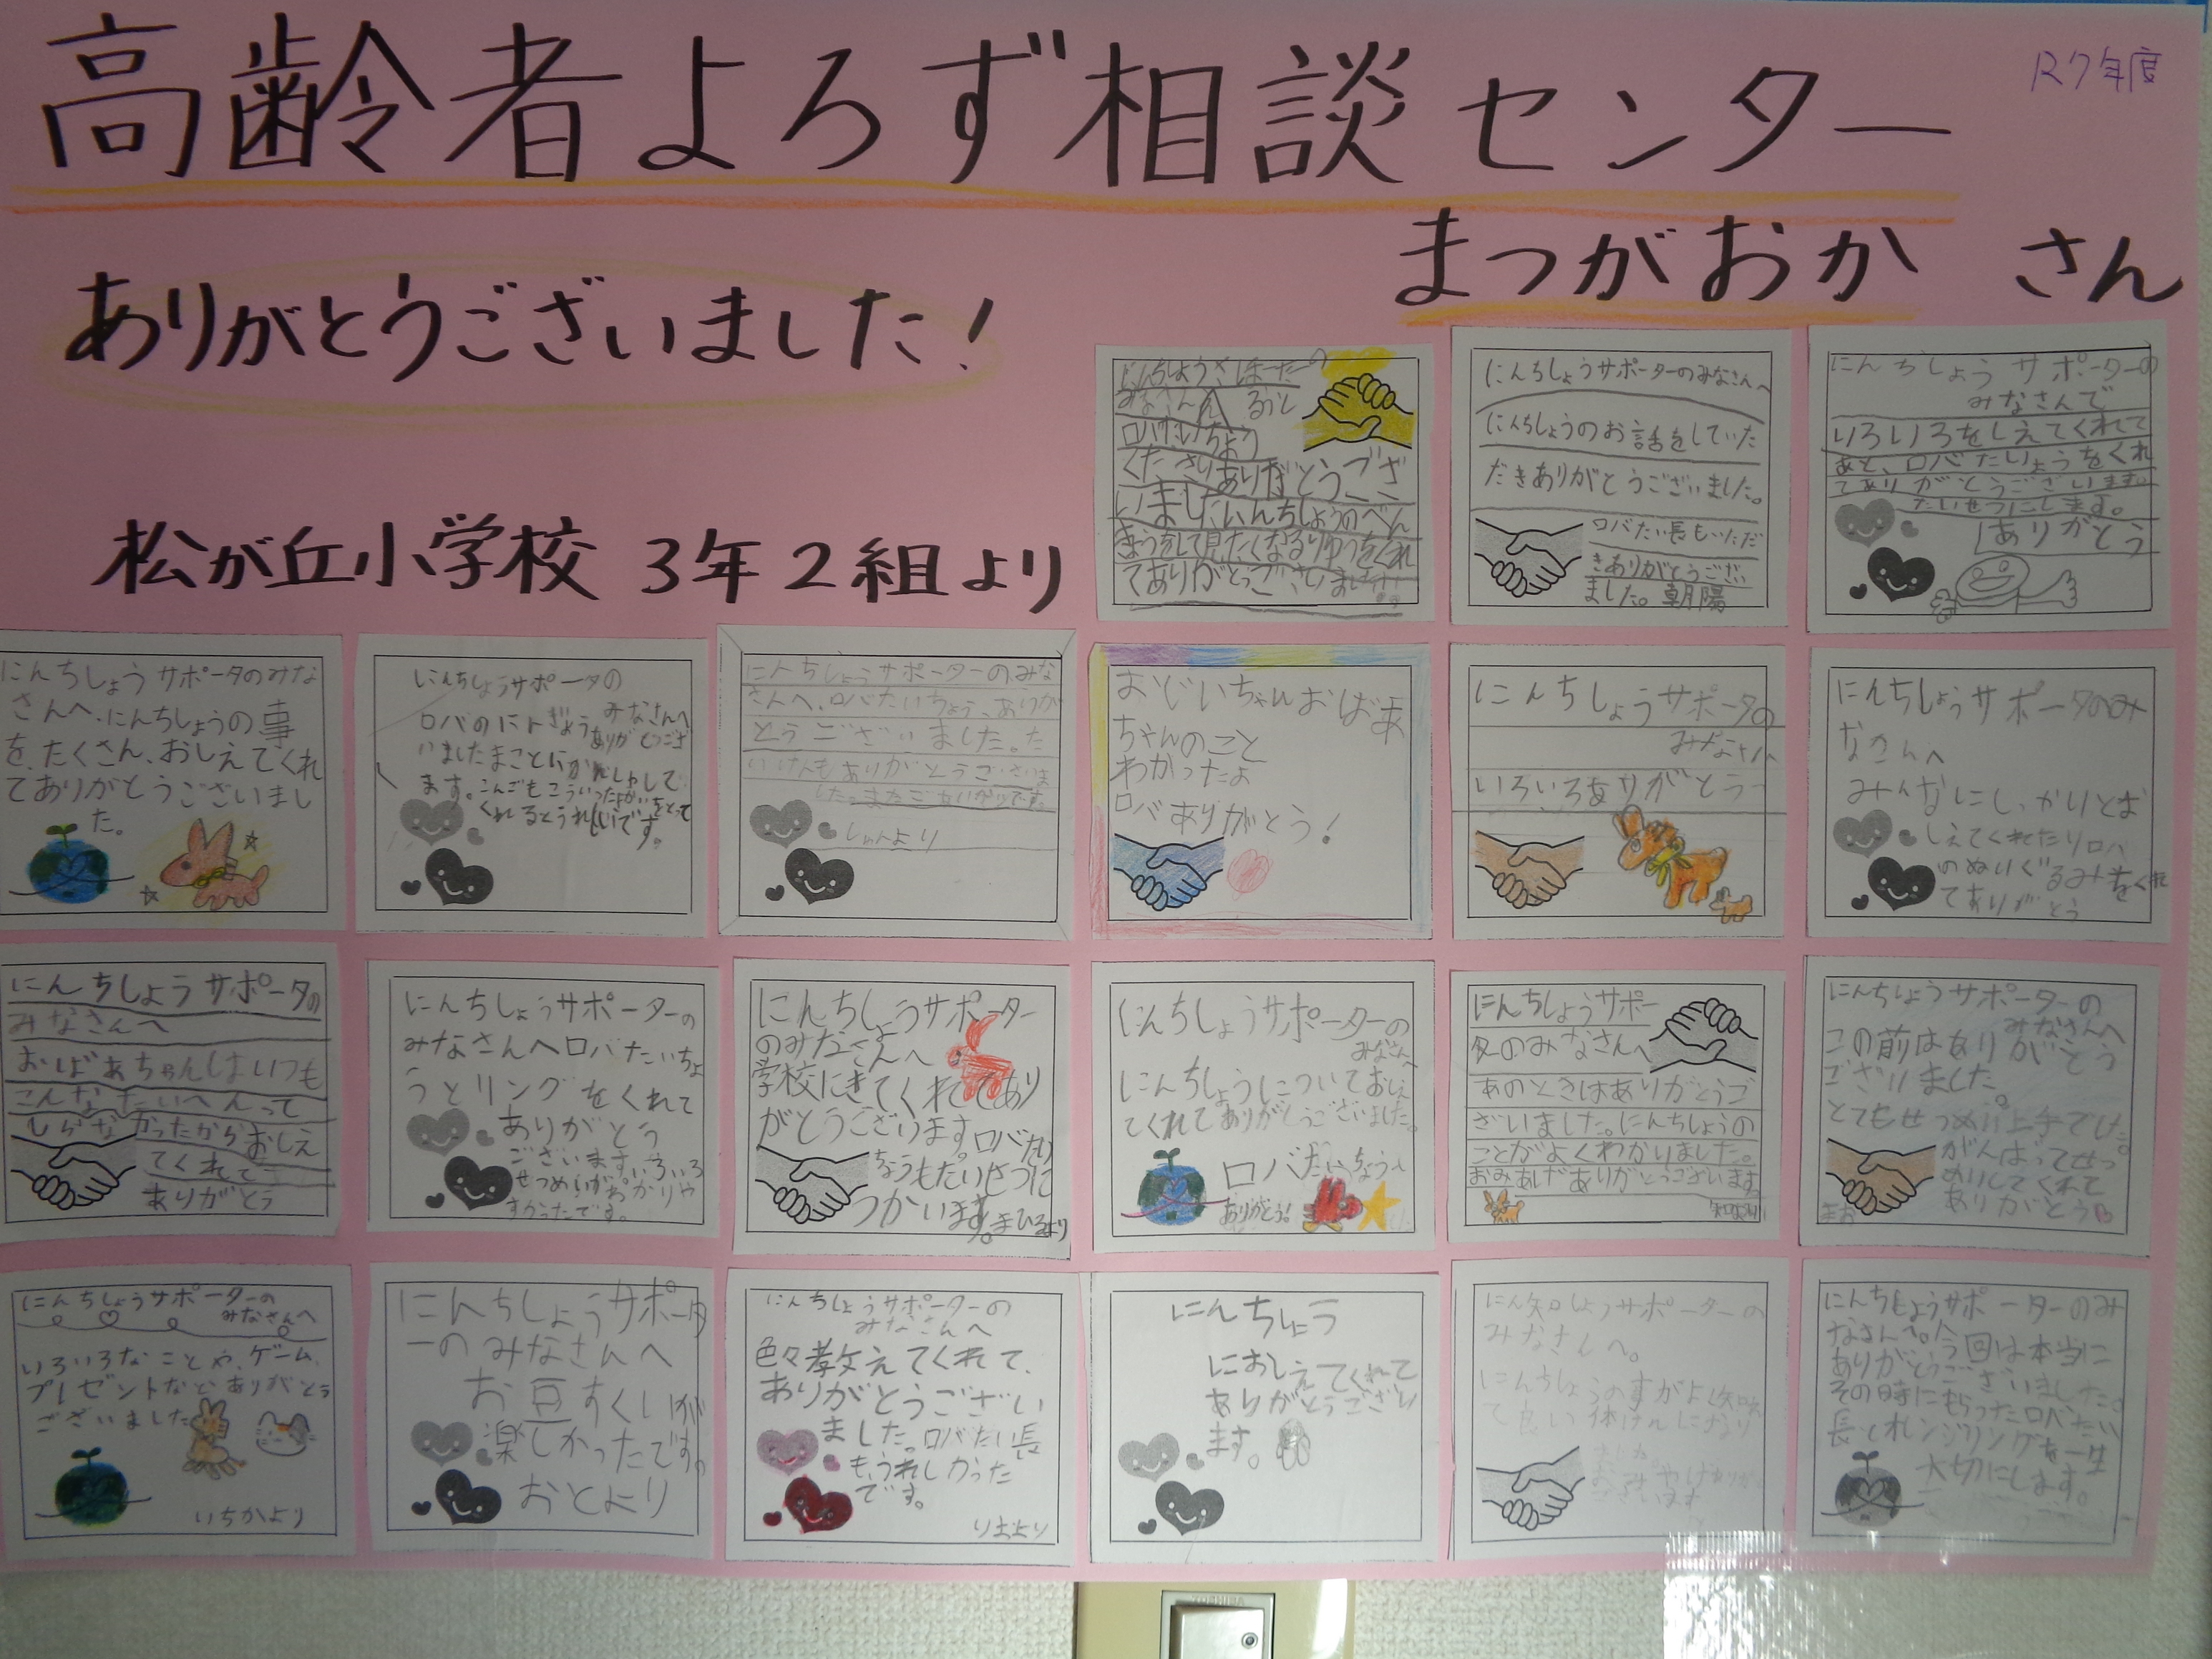 高齢者よろず相談センター
R7年度
まつがおか さん
ありがとうございました!
松が丘小学校 3年2組より
みなさんへ
ロバたいちょう
くださりありがとうござ
いましたにんちしょうのべん
てありがとうございました
にんちしょうサポーターのみなさんへ
にんちしょうのお話をしていた
だきありがとうございました。
ロバたい長もいただ
きありがとうござい
ました。朝陽
にんちしょうサポーターの
みなさんで
いろいろをしえてくれて
あと、ロバたいしょうをくれ
てありがとうございます。
たいせつにします。
ありがとう
にんちしょうサポータのみな
さんへ、にんちしょうの事
を、たくさん、おしえてくれ
てありがとうございまし
た。
にんちしょうサポータの
みなさんへ
ロバのにんぎょうありがとうござ
いましたまことにかんしゃして
ます。こんごもこういったきかいをとって
くれるとうれしいです。
にんちしょうサポーターのみな
さんへ、ロバたいちょう、ありが
とうございました。た
いけんもありがとうございま
した。
しゅんより
おじいちゃんおばあ
ちゃんのこと
わかったよ
ロバありがとう!
にんちしょうサポータの
みなさんへ
いろいろありがとう
にんちしょうサポータのみ
なさんへ
みんなにしっかりとお
しえてくれたりロバ
のぬいぐるみをくれ
てありがとう
にんちしょうサポータの
みなさんへ
おばあちゃんはいつも
こんなたいへんって
しらなかったからおしえ
てくれて
ありがとう
にんちしょうサポーターの
みなさんへロバたいちょ
うとリングをくれて
ありがとう
ございます。いろいろ
せつめいがわかりや
すかったです。
にんちしょうサポーター
のみなさんへ
学校にきてくれてあり
がとうございます。ロバたい
ちょうもたいせつに
つかいます。まひろより
にんちしょうサポーターの
みなさんへ
にんちしょうについておしえ
てくれてありがとうございました。
ロバたいちょう
ありがとう!
にんちしょうサポー
ターのみなさんへ
あのときはありがとうご
ざいました。にんちしょうの
ことがよくわかりました。
おみあげありがとうございます
にんちしょうサポーターの
みなさんへ
この前はありがとう
ございました。
とてもせつめい上手でした。
がんばってせつ
めいしてくれて
ありがとう
まお
にんちしょうサポーターの
みなさんへ
いろいろなことや、ゲーム、
プレゼントなどありがとう
ございました
いちかより
にんちしょうサポータ
ーのみなさんへ
お豆すくいが
楽しかったです。
おとより
にんちしょうサポーターの
みなさんへ
色々教えてくれて、
ありがとうござい
ました。ロバたい長
も、うれしかった
です。
りおより
にんちしょう
におしえてくれて
ありがとうござい
ます。
にん知しょうサポーターの
みなさんへ。
にんちしょうサポーターのみ
なさんへ。今回は本当に
ありがとうございました。
その時にもらったロバたい
長とオレンジリングを一生
大切にします。
TOSHIBA